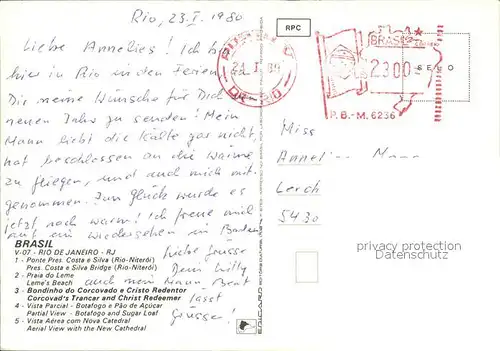 Rio, 23.I.1980
RPC
Liebe Annelies! Ich bin
hier in Rio in den Ferien
Dir meine Wünsche für Dich
neuen Jahr zu senden! Mein
Mann liebt die Kälte gar nicht,
hat beschlossen an die Wärme
zu fliegen, und auch mich mit-
genommen. Zum Glück wurde es
jetzt noch warm! Ich freue mich
auf ein Wiedersehen in Baden
Liebe Grüsse
Dein Willy
auch mein Mann Beat
lässt
Grüsse!
BRASIL
2300
SELO
P.B.-M. 6236
Miss
Lerch
5430
privacy protection
Datenschutz
BRASIL
V-07 - RIO DE JANEIRO - RJ
1 - Ponte Pres. Costa e Silva (Rio-Niterói)
Pres. Costa e Silva Bridge (Rio-Niterói)
2 - Praia do Leme
Leme's Beach
3 - Bondinho do Corcovado e Cristo Redentor
Corcovad's Trancar and Christ Redeemer
4 - Vista Parcial - Botafogo e Pão de Açúcar
Partial View - Botafogo and Sugar Loaf
5 - Vista Aérea com Nova Catedral
Aerial View with the New Cathedral
EDICARD